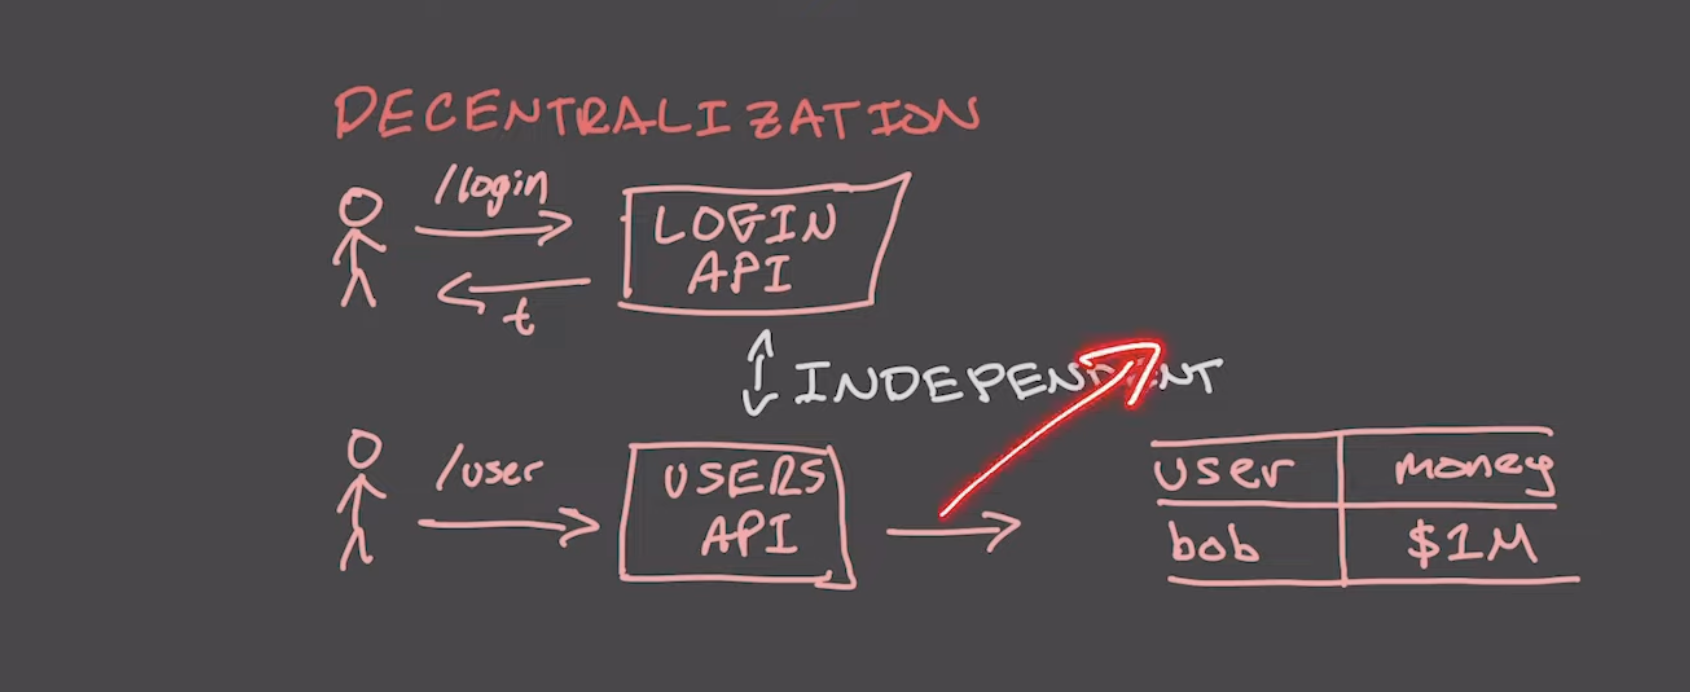 DECENTRALIZATION
/login
LOGIN
API
t
INDEPENDENT
/user
USERS
API
user money
bob $1M